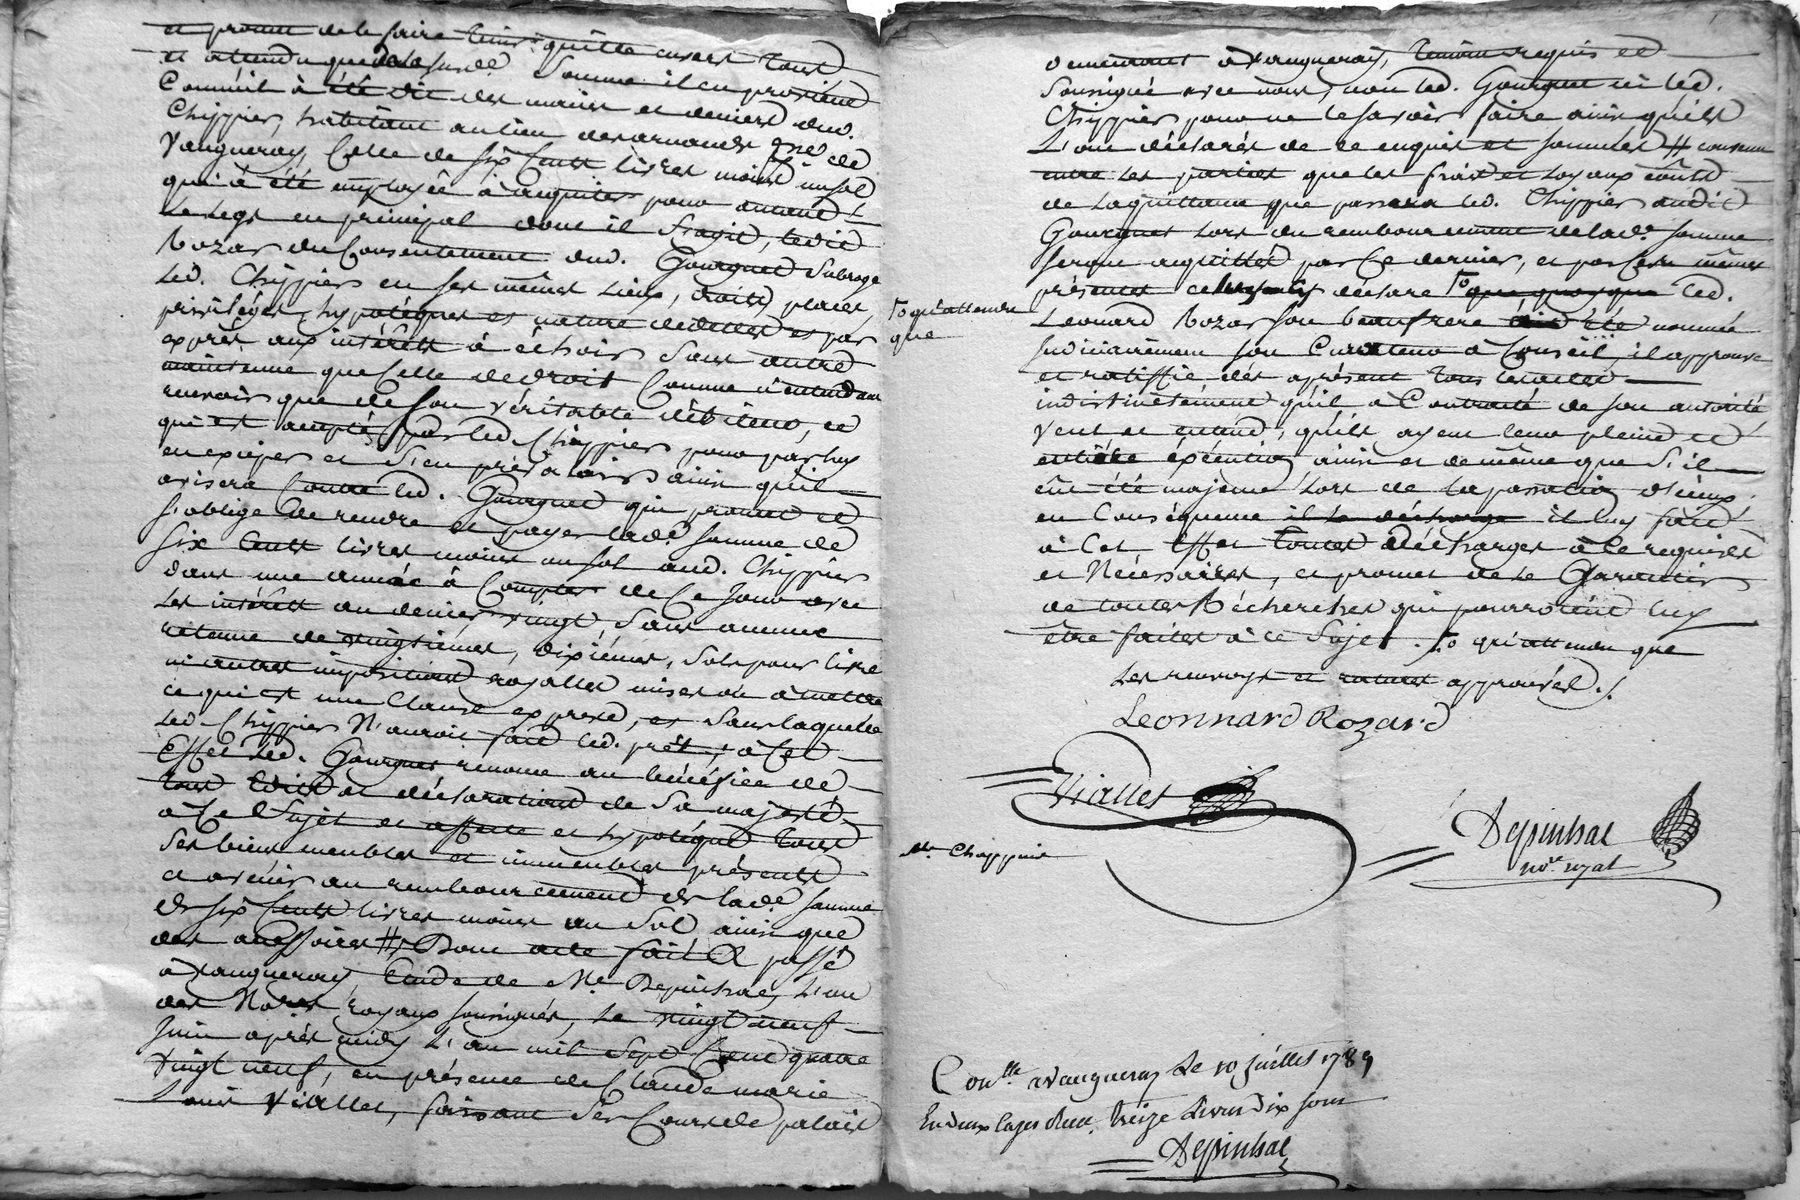 et promet de le faire tenir quitte envers tous
et attendu que de la susde. Somme il en provient
Comme il à été dit des mains et deniers dud.
Chippier, habitant au lieu des arnauds psse. de
Vaugneray, Celle de six Cents livres moins un sol
qui à été employée à acquiter pour autant
Le Legs en principal dont il s'agit, ledit
Rozar du Consentement dud. Gourguet subroge
Led. Chippier en ses mêmes Lieux, droits, places,
privilèges, hypotéques et nature de dettes et par
exprès aux intérêts à échoir Sans autre
maintenue que Celle de droit Comme n'entendant
recevoir que de son véritable débiteur, ce
qui est accepté par led. Chippier pour par luy
en exiger et S'en prévaloir ainsi qu'il
avisera Contre led. Gourguet qui promet et
s'oblige de rendre et payer lade. somme de
Six Cents livres moins un sol aud. Chippier
dans une année à Compter de Ce Jour avec
Les intérêts au denier vingt, Sans aucune
retenue de vingtiémes, dixiémes, Sols pour livre
ni autres impositions royalles mises ou à mettre
ce qui est une Clause expresse, et Sans laquelle
Led. Chippier N'auroit fait led. prêt, à Cet
Effet Led. Gourguet renonce au bénéfice de
tous Edits et déclarations de Sa majesté
à Ce Sujet et affecte et hypotéque tous
Ses biens meubles et immeubles présents
et avenir au remboursement de lade. somme
de six Cents livres moins un Sol ainsi que
des accessoires # Dont acte fait & passé
à Vaugneray Etude de Me. Depinhac, L'un
des Nores. royaux soussignés, Le vingt neuf
Juin après midy L'an mil Sept Cent quatre
vingt neuf, en présence de Claude marie
Louis Viallet, faisant Ses Cours de palais
demeurant à Vaugneray, témoin requis et
Soussigné avec nous, non led. Gourguet ni led.
Chippier pour ne le savoir faire ainsi qu'ils
L'ont déclarés de ce enquis et sommés # convenu
entre les parties que les frais et loyaux coûts
de la quittance que passera led. Chippier audit
Gourguet Lors du remboursement de lade. somme
seront acquittés par Ce dernier, et par Ces mêmes
présentes déclare que, quoyque led.
Leonard Rozar son beaufrere été nommé
Judiciairement son Curateur à Conseil, il approuve
et ratiffie dès aprésent tous les actes
indistinctement qu'il à Contracté de son autorité
veut et entend, qu'ils ayent leur pleine et
entière éxécution ainsi et de même que S'il
eût été majeur Lors de la passation d'iceux.
en Conséquence il le décharge il luy fait
à Cet Effet toutes décharges à Ce requises
et Nécessaires, et promet de le Garantir
de toutes Récherches qui pourroient luy
être faites à ce Sujet. qu'attendu que
Les renvoys et ratures approuvés ./.
qu'attendu
que
Leonnard Rozard
Viallet
Depinhac
nore. royal
Me. Chappuis
Conlle. à Vaugneray Le 10 Juillet 1789
En deux Cazes Reçu Treize Livres dix sous
Depinhac